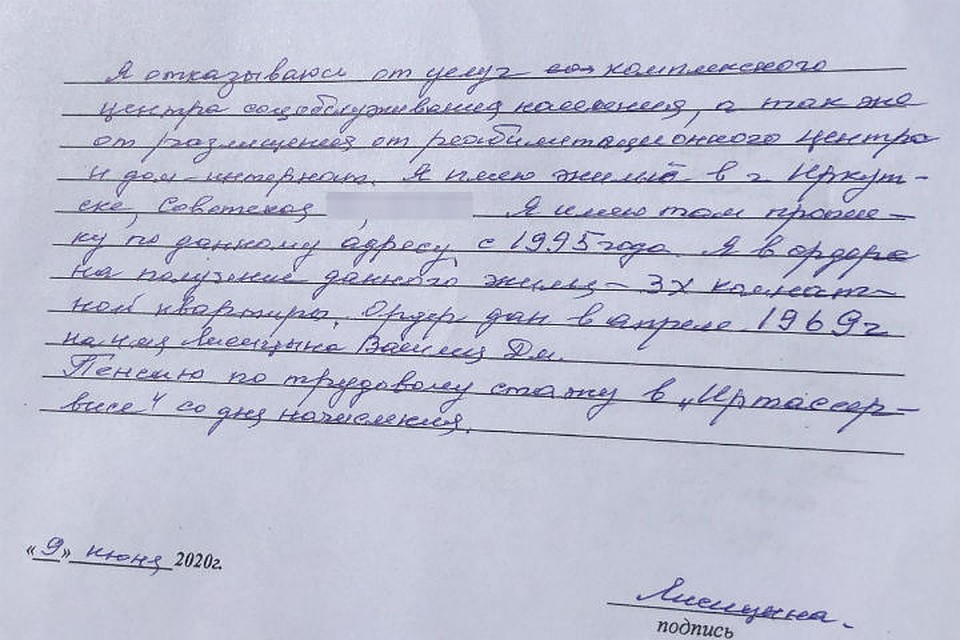 Я отказываюсь от услуг соз комплексного
центра соцобслуживания населения, а так же
от размещения от реабилитационного центра
и дом-интернат. Я имею жильё в г Иркут-
ске, Советская Я имею там пропис-
ку по данному адресу с 1995 года. Я в ордере
на получение данного жилья - 3х комнат-
ной квартиры. Ордер дан в апреле 1969г
на имя Лисицына Василия Дм.
Пенсию по трудовому стажу в „Иртассер-
висе" со дня начисления.
«9» июня 2020г.
Лисицына.
подпись